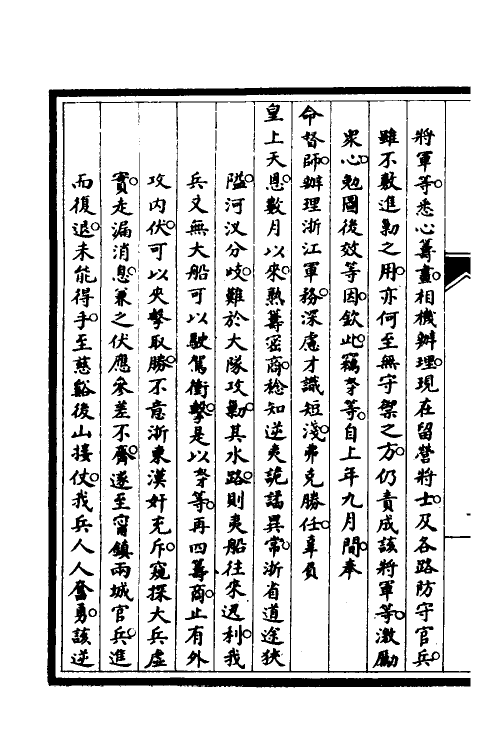 將軍等悉心籌畫相機辦理現在留營將士及各路防守官兵
雖不敷進勦之用亦何至無守禦之方仍責成該將軍等激勵
衆心勉圖後效等因欽此竊孥等自上年九月間奉
命督師辦理浙江軍務深慮才識短淺弗克勝任辜負
皇上天恩數月以來熟籌密商稔知逆夷詭譎異常浙省道途狹
隘河汊分歧難於大隊攻勦其水路則夷船往來迅利我
兵又無大船可以駛駕衝擊是以孥等再四籌商止有外
攻內伏可以夾擊取勝不意浙東漢奸充斥窺探大兵虛
實走漏消息兼之伏應參差不齊遂至甯鎮兩城官兵進
而復退未能得手至慈谿後山接仗我兵人人奮勇該逆